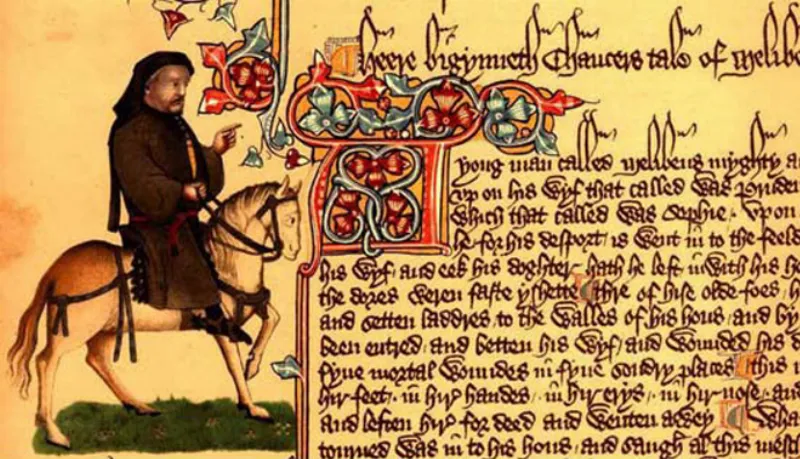 Heere bigynneth Chaucers tale of Melibe
A yong man called Melibeus myghty a
vp on his wyf that called was Pruden
Which that called was Sophie / vpon
he for his desport / is went in to the feeld
his wyf / and eek his doghter / hath he left inwith his h
the dores weren faste yshette / thre of hise olde foes / h
and setten laddres / to the walles of his hous / and by
been entred / and betten his wyf / and wounded his d
fyue mortal woundes / in fyue sondry places / this i
hir feet / in hir handes / in hir erys / in hir nose / and
and leften hir for deed / and wenten awey / Wha
tourned was in to his hous / and saugh al this mesch